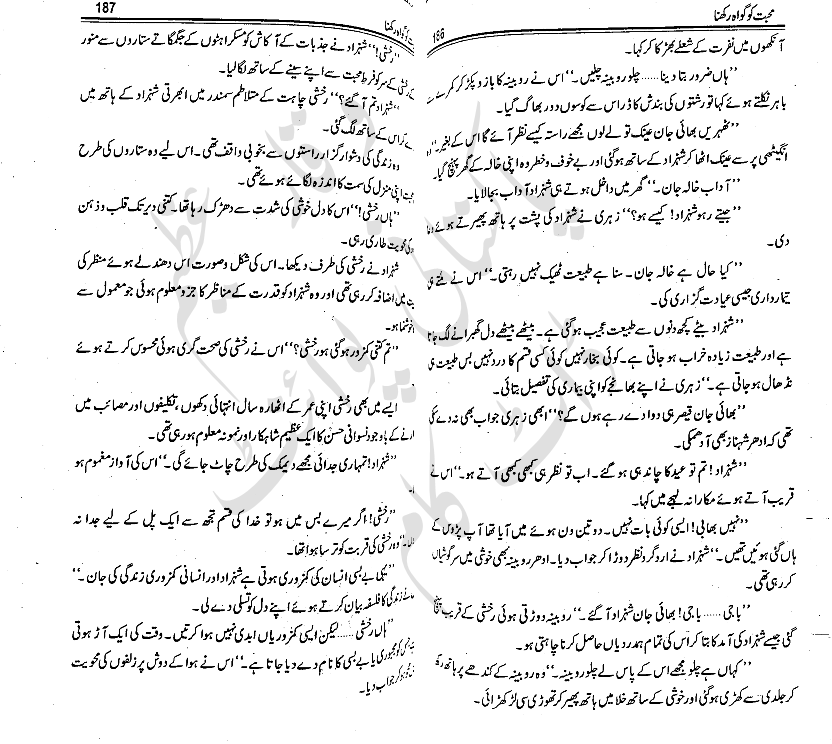 محبت کو گواہ رکھنا
186
آنکھوں میں نفرت کے شعلے بھڑکا کر کہا۔
’’ہاں ضرور بتا دینا......چلو روبینہ چلیں۔‘‘ اس نے روبینہ کا بازو پکڑ کر کمرے سے
باہر نکلتے ہوئے کہا تو رشتوں کی بندش کا ڈر اس سے کوسوں دور بھاگ گیا۔
’’ٹھہریں بھائی جان عینک تو لے لوں مجھے راستہ کیسے نظر آئے گا اس کے بغیر۔‘‘ وہ
انگیٹھی پر سے عینک اٹھا کر شہزاد کے ساتھ ہو گئی اور بے خوف و خطر وہ اپنی خالہ کے گھر پہنچ گیا۔
’’آداب خالہ جان۔‘‘ گھر میں داخل ہوتے ہی شہزاد آداب بجا لایا۔
’’جیتے رہو شہزاد! کیسے ہو؟‘‘ زہری نے شہزاد کی پشت پر ہاتھ پھیرتے ہوئے دعا
دی۔
’’کیا حال ہے خالہ جان۔ سنا ہے طبیعت ٹھیک نہیں رہتی۔‘‘ اس نے
تیمارداری جیسی عیادت گزاری کی۔
’’شہزاد بیٹے کچھ دنوں سے طبیعت عجیب ہو گئی ہے۔ بیٹھے بیٹھے دل گھبرانے لگ جاتا
ہے اور طبیعت زیادہ خراب ہو جاتی ہے۔ کوئی بخار نہیں کوئی کسی قسم کا درد نہیں بس طبیعت ہی
نڈھال ہو جاتی ہے۔‘‘ زہری نے اپنے بھانجے کو اپنی بیماری کی تفصیل بتائی۔
’’بھائی جان قیصر ہی دوا دے رہے ہوں گے؟‘‘ ابھی زہری جواب بھی نہ دے پائی
تھی کہ ادھر شہناز بھی آ دھمکی۔
’’شہزاد! تم تو عید کا چاند ہی ہو گئے۔ اب تو نظر ہی کبھی کبھی آتے ہو۔‘‘ اس نے
قریب آتے ہوئے مکارانہ لہجے میں کہا۔
’’نہیں بھابی! ایسی کوئی بات نہیں۔ دو تین دن ہوئے میں آیا تھا آپ پڑوس کے
ہاں گئی ہوئیں تھیں۔‘‘ شہزاد نے اردگرد نظر دوڑا کر جواب دیا۔ ادھر روبینہ بھی خوشی میں سرگوشیاں
کر رہی تھی۔
’’باجی......باجی! بھائی جان شہزاد آ گئے۔‘‘ روبینہ دوڑتی ہوئی رخشی کے قریب پہنچ
گئی جیسے شہزاد کی آمد کا بتا کر اس کی تمام ہمدردیاں حاصل کرنا چاہتی ہو۔
’’کہاں ہے چلو مجھے اس کے پاس لے چلو روبینہ۔‘‘ وہ روبینہ کے کندھے پر ہاتھ رکھ
کر جلدی سے کھڑی ہو گئی اور خوشی کے ساتھ خلا میں ہاتھ پھیر کر تھوڑی سی لڑکھڑائی۔
187
گواہ رکھنا
’’رخشی!‘‘ شہزاد نے جذبات کے آکاش کو مسکراہٹوں کے جگمگاتے ستاروں سے منور
کے رخشی کے سر کو فرط محبت سے اپنے سینے کے ساتھ لگا لیا۔
’’شہزاد تم آ گئے؟‘‘ رخشی چاہت کے متلاطم سمندر میں ابھرتی شہزاد کے ہاتھ میں
کے اس کے ساتھ لگ گئی۔
وہ زندگی کی دشوار گزار راستوں سے بخوبی واقف تھی۔ اس لیے وہ ستاروں کی طرح
اپنی منزل کی سمت کا اندازہ لگائے ہوئے تھی۔
’’ہاں رخشی!‘‘ اس کا دل خوشی کی شدت سے دھڑک رہا تھا۔ کتنی دیر تک قلب و ذہن
محویت طاری رہی۔
شہزاد نے رخشی کی طرف دیکھا۔ اس کی شکل و صورت اس دھندلے ہوئے منظر کی
میں اضافہ کر رہی تھی اور وہ شہزاد کو قدرت کے مناظر کا جزو معلوم ہوئی جو معمول سے
خوشنما ہو۔
’’تم کتنی کمزور ہو گئی ہو رخشی؟‘‘ اس نے رخشی کی صحت گری ہوئی محسوس کرتے ہوئے
ایسے میں بھی رخشی اپنی عمر کے اٹھارہ سال انتہائی دکھوں، تکلیفوں اور مصائب میں
گزارنے کے باوجود نسوانی حسن کا ایک عظیم شاہکار اور نمونہ معلوم ہو رہی تھی۔
’’شہزاد! تمہاری جدائی مجھے دیمک کی طرح چاٹ جائے گی۔‘‘ اس کی آواز مغموم ہو
’’رخشی! اگر میرے بس میں ہو تو خدا کی قسم تجھ سے ایک پل کے لیے جدا نہ
‘‘ وہ رخشی کی قربت کو ترسا ہوا تھا۔
’’یہی بے بسی انسان کی کمزوری ہوتی ہے شہزاد اور انسانی کمزوری زندگی کی جان۔‘‘
زندگی کا فلسفہ بیان کرتے ہوئے اپنے دل کو تسلی دے لی۔
’’ہاں رخشی......لیکن ایسی کمزوریاں ابدی نہیں ہوا کرتیں۔ وقت کی ایک آڑ ہوتی
جس کو مجبوری یا بے بسی کا نام دے دیا جاتا ہے۔‘‘ اس نے ہوا کے دوش پر زلفوں کی محویت
کر جواب دیا۔
پاکستانی پوائنٹ
ڈاٹ کام